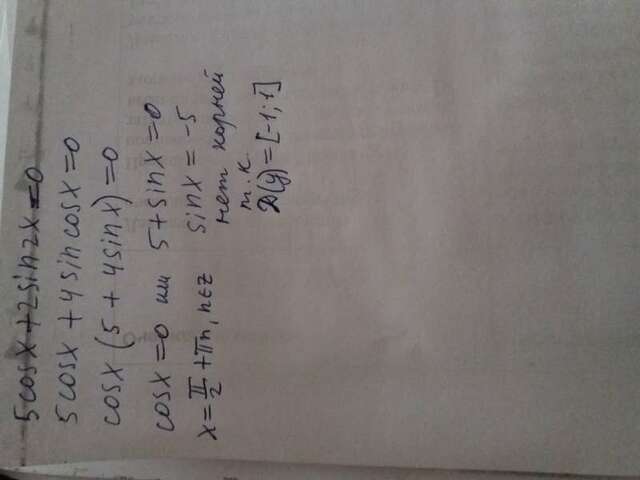 5cosx+2sin2x=0
5cosx+4sincosx=0
cosx(5+4sinx)=0
cosx=0 или 5+sinx=0
x=π/2+πn, n∈z sinx=-5
нет корней
т.к.
D(y)=[-1;1]